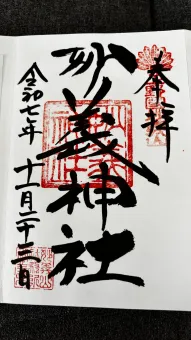 奉拝
妙義神社
令和七年
十一月二十三日